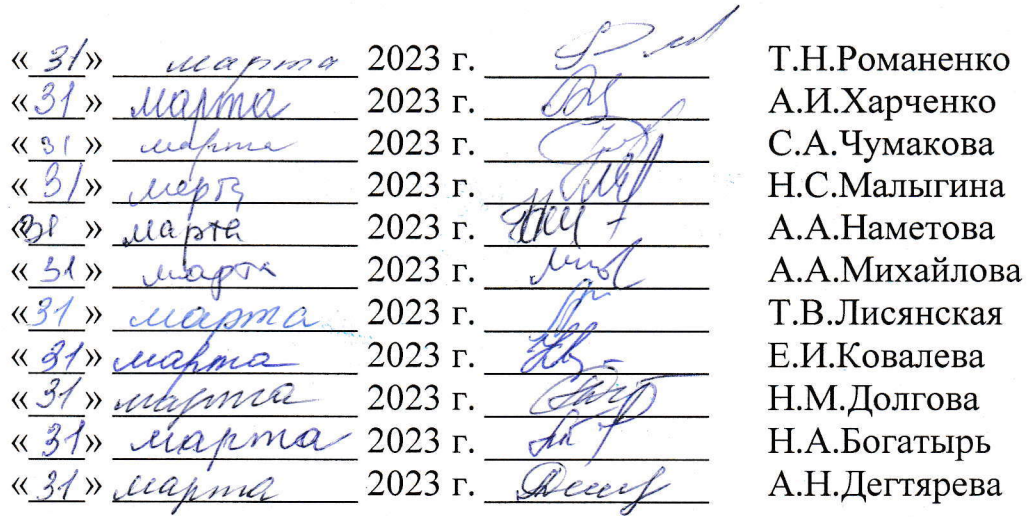 «31» марта 2023 г. Т.Н.Романенко
«31» марта 2023 г. А.И.Харченко
«31» марта 2023 г. С.А.Чумакова
«31» марта 2023 г. Н.С.Малыгина
«31» марта 2023 г. А.А.Наметова
«31» марта 2023 г. А.А.Михайлова
«31» марта 2023 г. Т.В.Лисянская
«31» марта 2023 г. Е.И.Ковалева
«31» марта 2023 г. Н.М.Долгова
«31» марта 2023 г. Н.А.Богатырь
«31» марта 2023 г. А.Н.Дегтярева